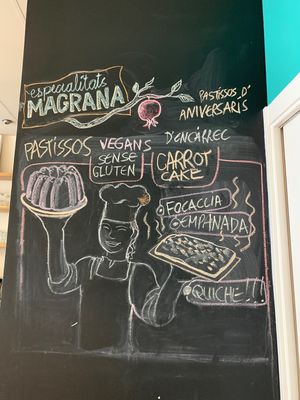 especialitats
MAGRANA
PASTISSOS D'
ANIVERSARIS
PASTISSOS
VEGANS
SENSE
GLUTEN
D'ENCÀRREC
CARROT
CAKE
FOCACCIA
EMPANADA
QUICHE!!!